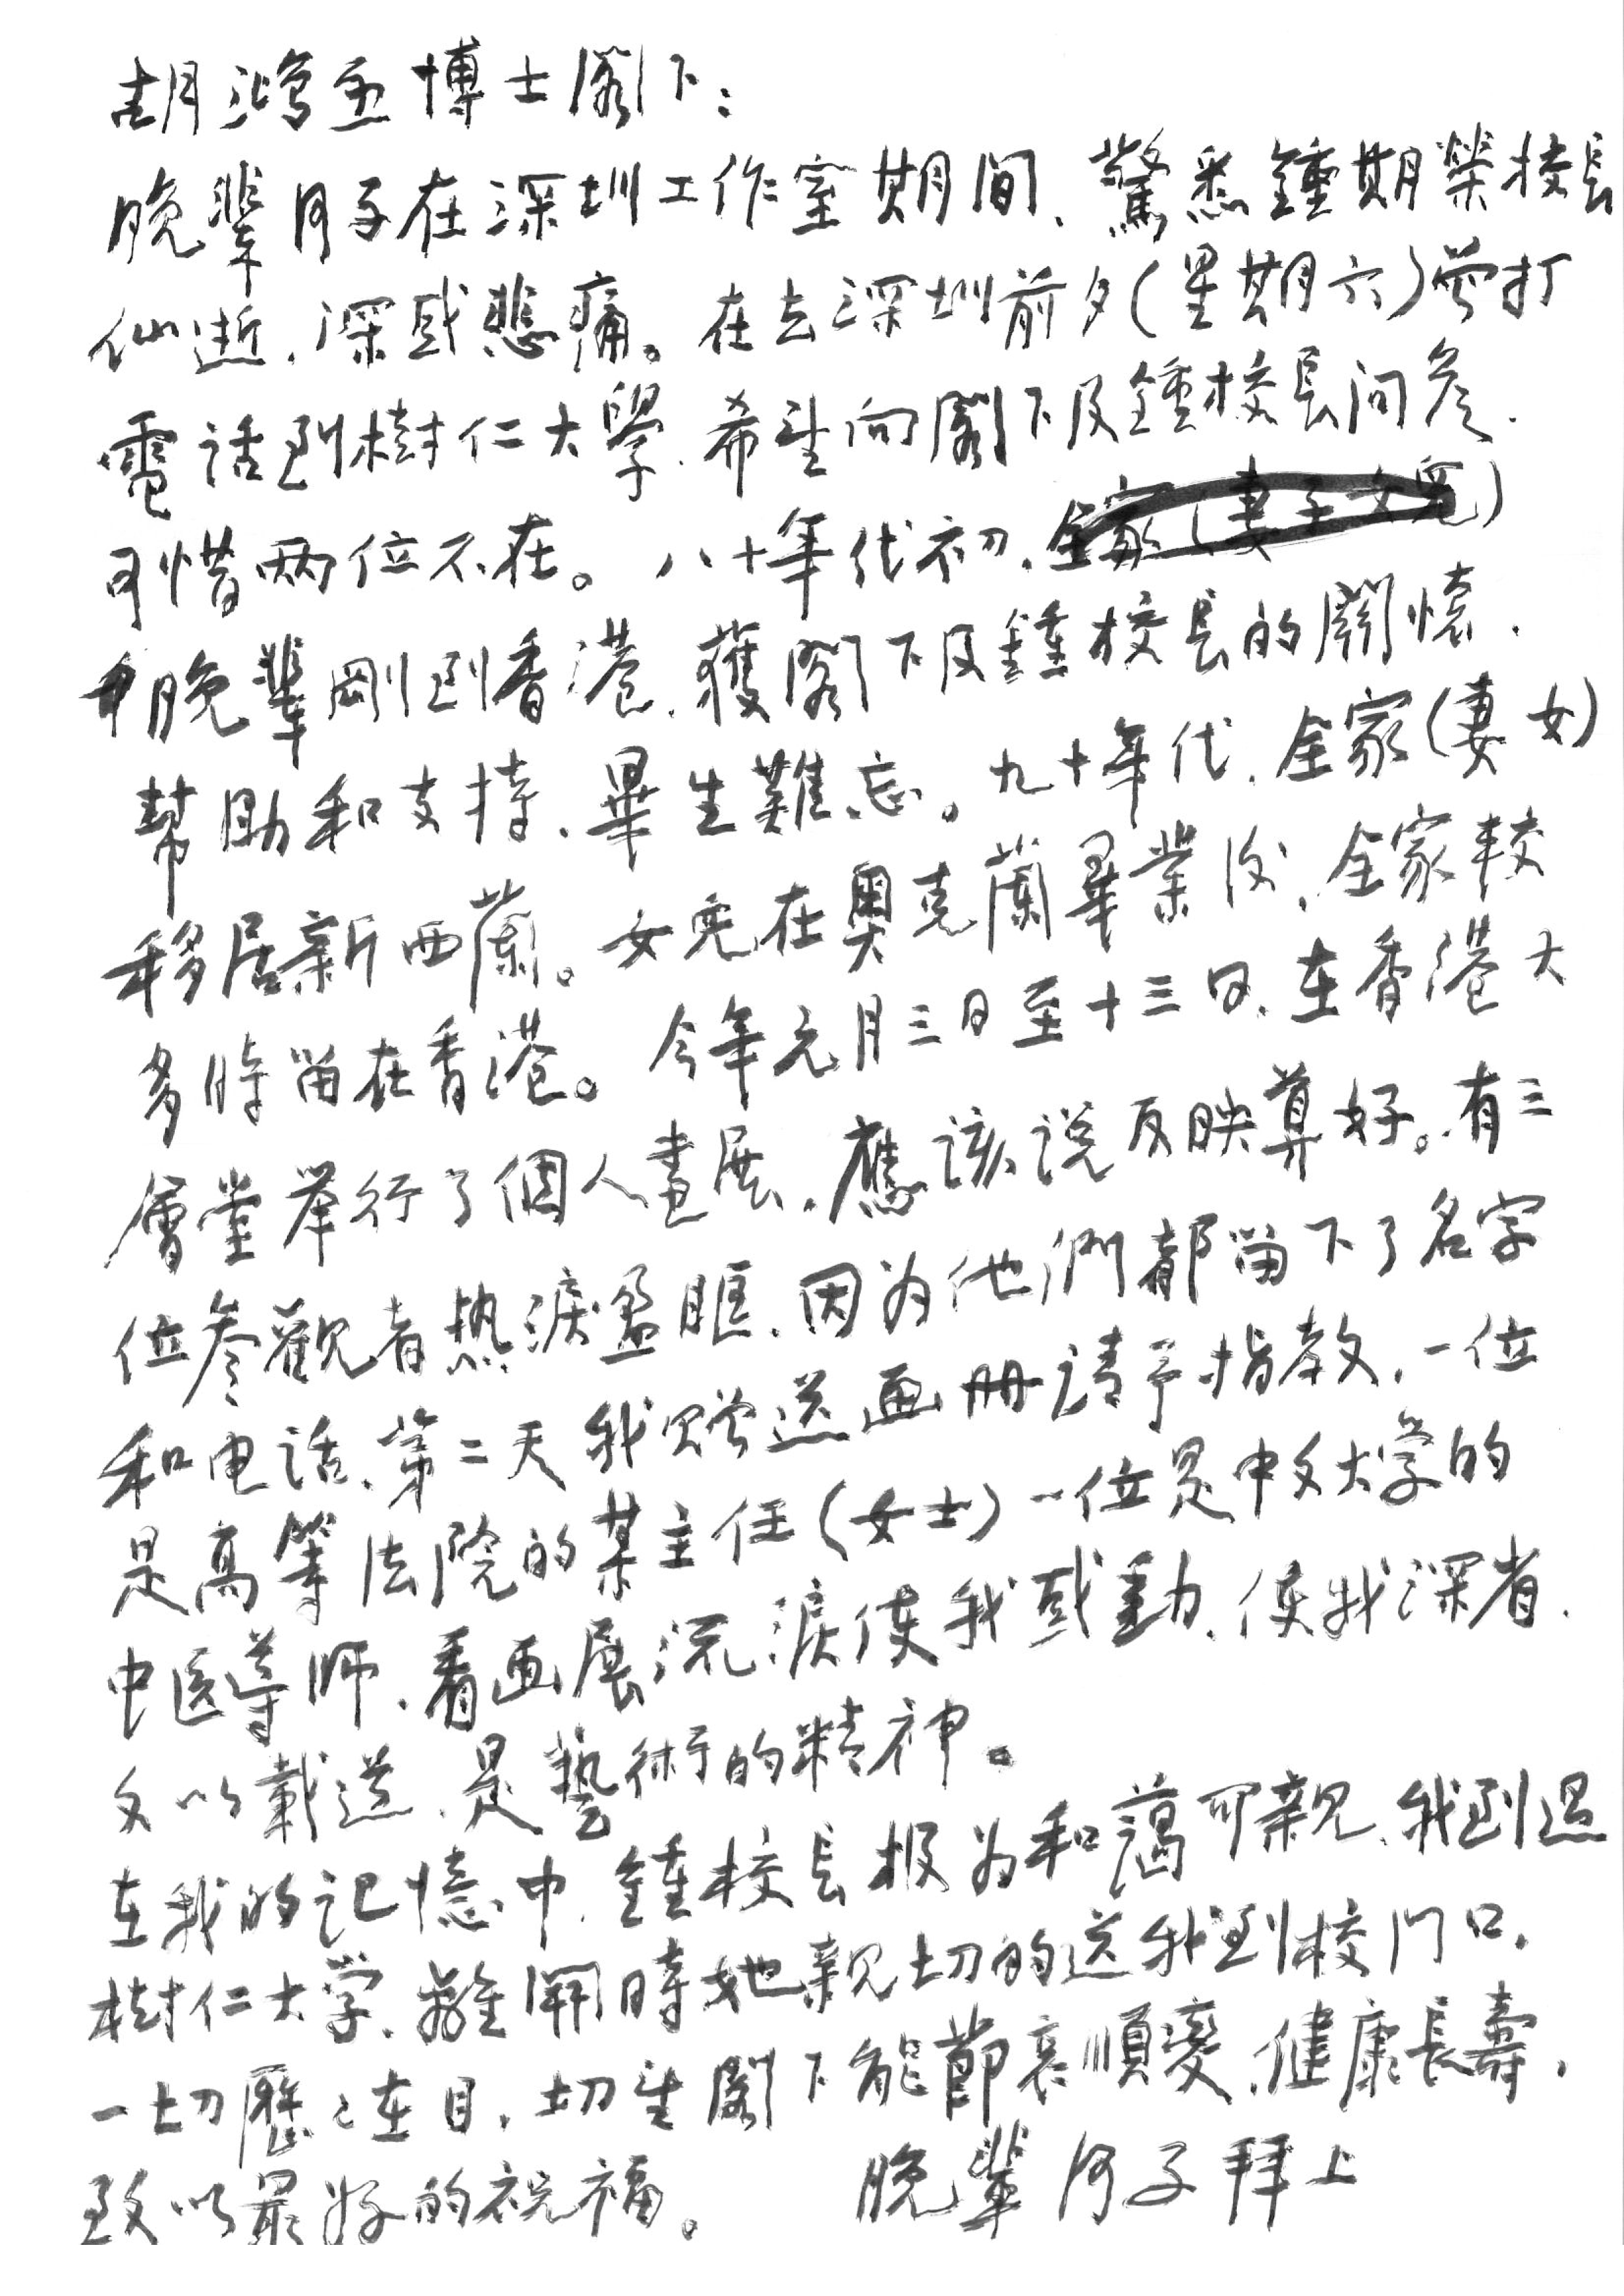 胡鴻烈博士閣下：
晚輩月子在深圳工作室期間、驚悉鍾期榮校長
仙逝、深感悲痛。在去深圳前夕(星期六)曾打
電話到樹仁大學、希望向閣下及鍾校長问安.
可惜两位不在。八十年代初、
晚輩剛到香港、獲閣下及鍾校長的關懷、
幫助和支持、畢生難忘。九十年代、全家(妻女)
移居新西蘭。女兒在奧克蘭畢業後、全家較
多時留在香港。今年元月三日至十三日、在香港大
會堂举行了個人畫展、應該说反映算好。有三
位参觀者热淚盈眶、因为他們都留下了名字
和电話、第二天我赠送画册请予指教、一位
是高等法院的某主任(女士)一位是中文大学的
中医導师、看画展流淚使我感動、使我深省、
文以載道、是藝術的精神。
在我的记憶中、鍾校長极为和藹可亲见、我到過
樹仁大学、離開時她親切的送我到校门口、
一切歷々在目、切望閣下能節哀順變、健康長壽、
致以最好的祝福。 晚輩 月子拜上